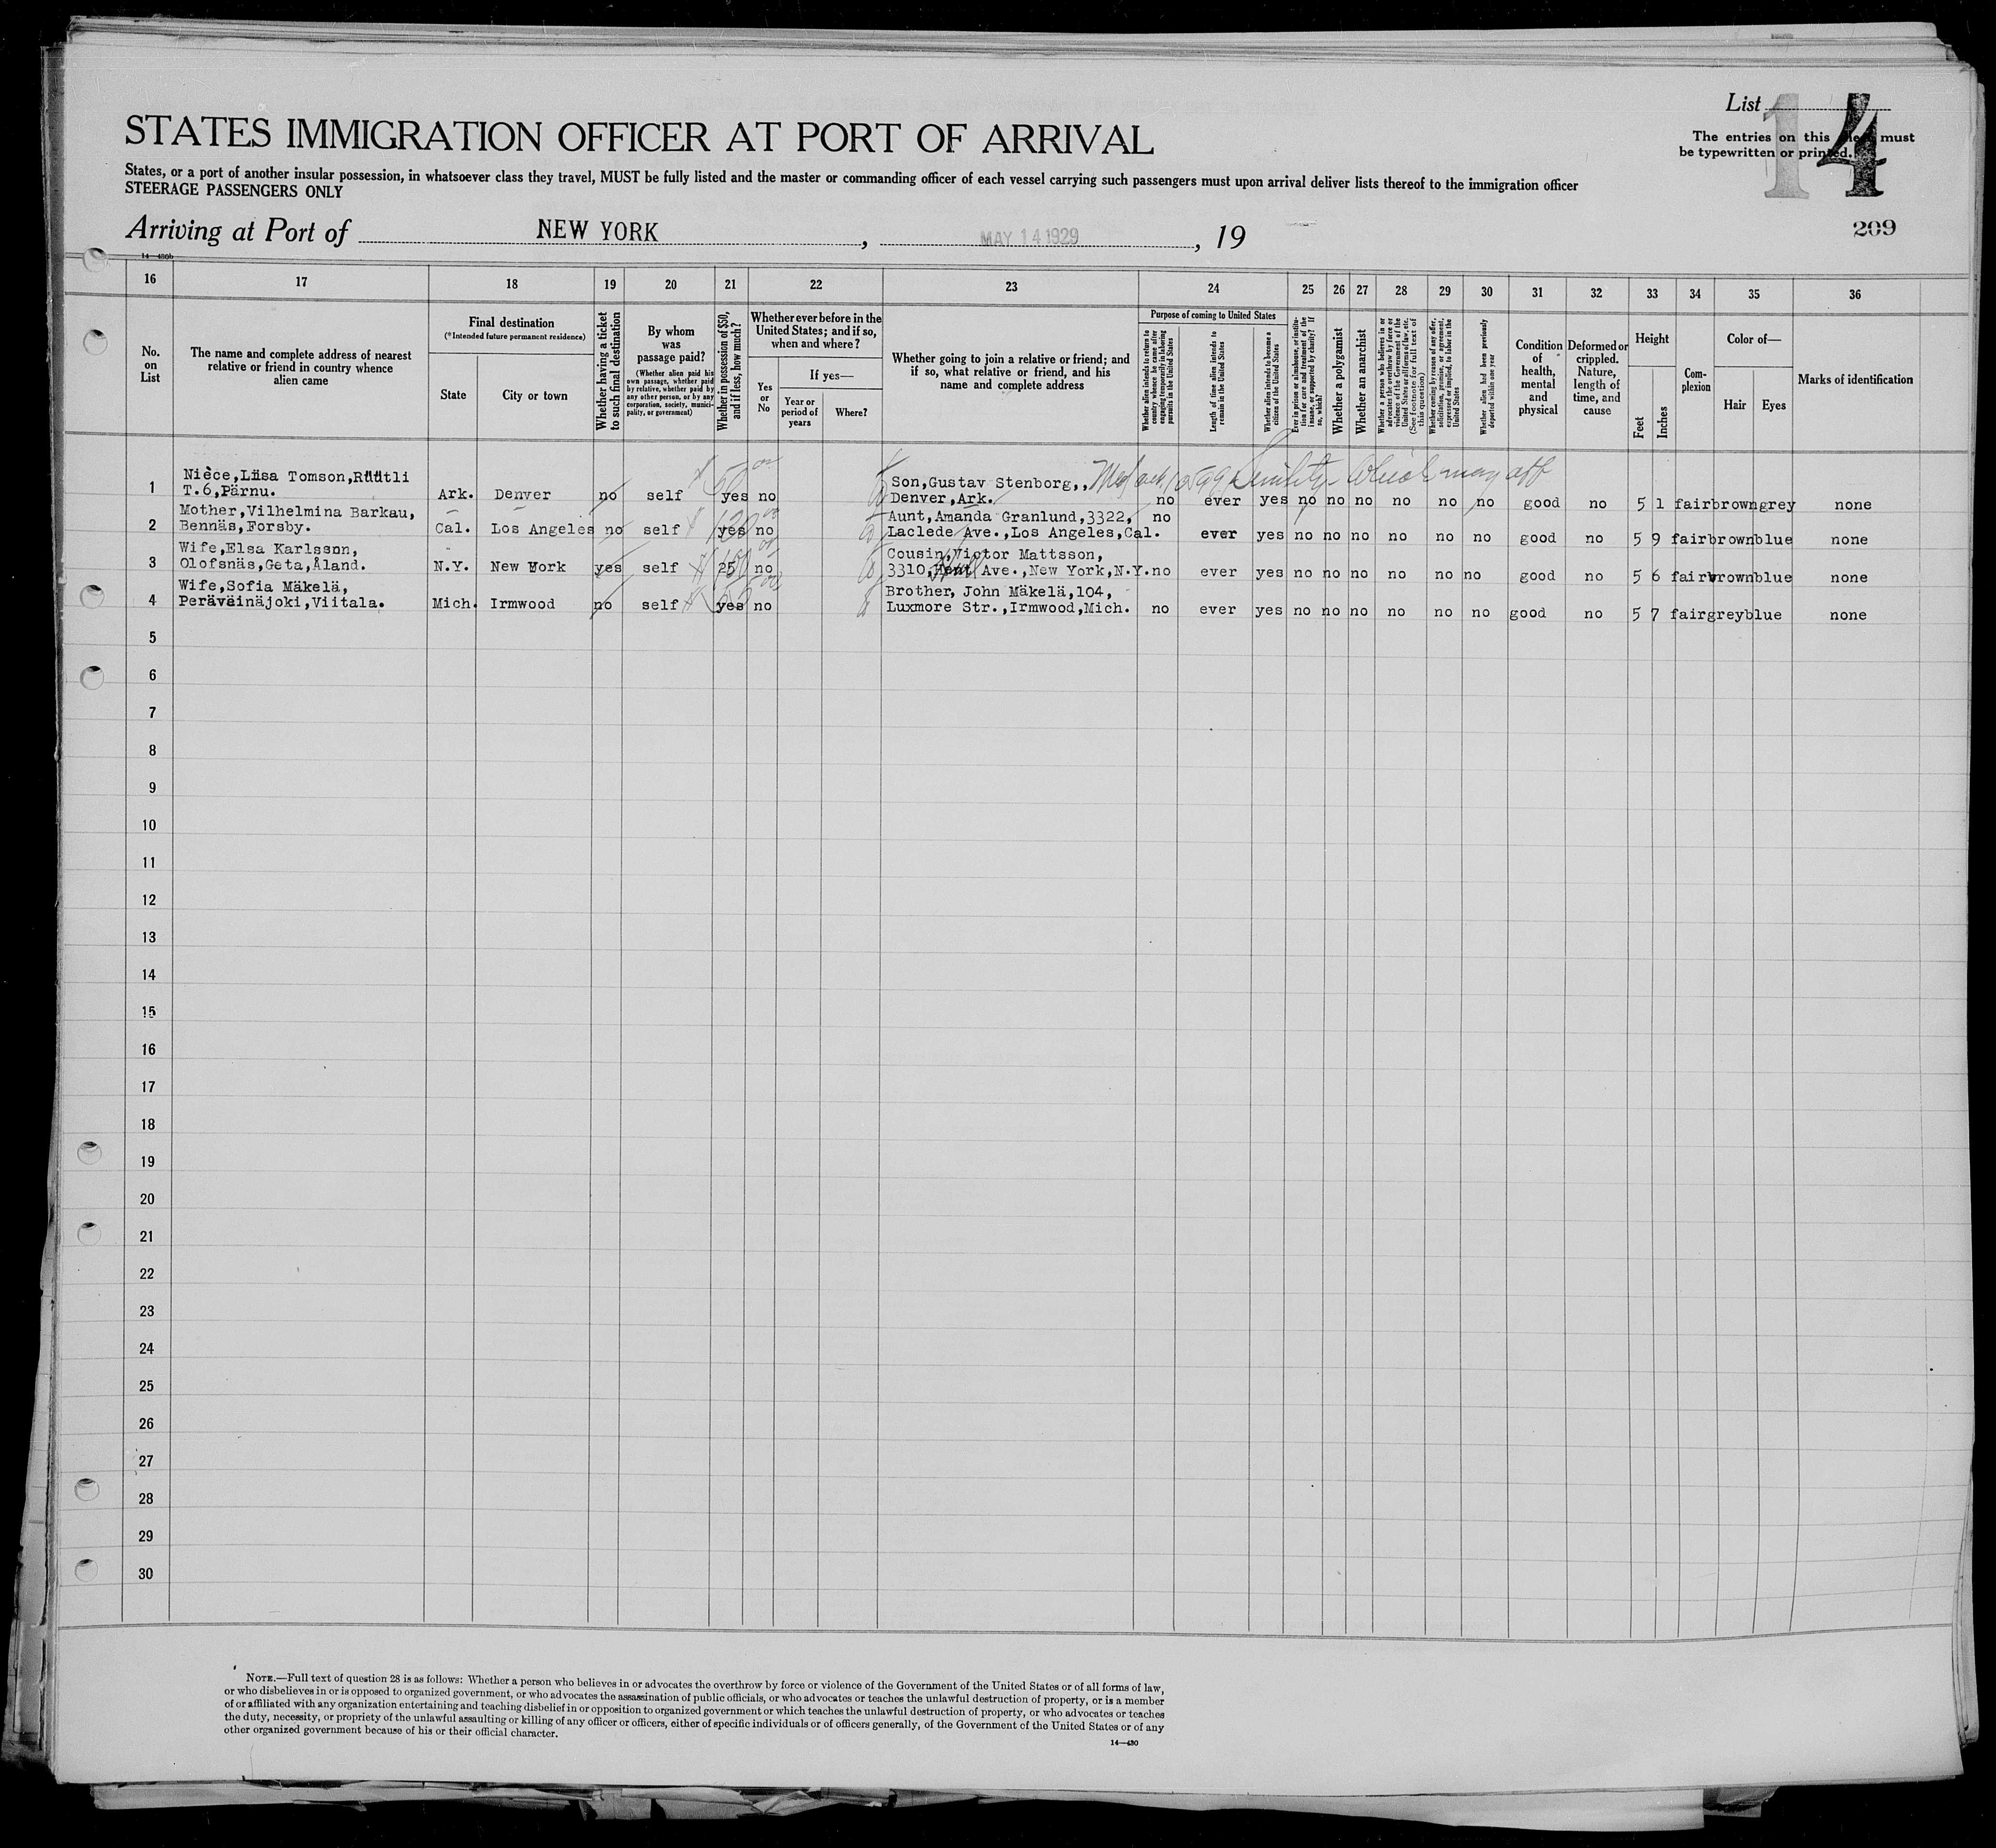 List 14
The entries on this sheet must
be typewritten or printed.
STATES IMMIGRATION OFFICER AT PORT OF ARRIVAL
States, or a port of another insular possession, in whatsoever class they travel, MUST be fully listed and the master or commanding officer of each vessel carrying such passengers must upon arrival deliver lists thereof to the immigration officer
STEERAGE PASSENGERS ONLY
Arriving at Port of NEW YORK, MAY 14 1929, 19
209
14—430b
16 17 18 19 20 21 22 23 24 25 26 27 28 29 30 31 32 33 34 35 36
No.
on
List
The name and complete address of nearest
relative or friend in country whence
alien came
Final destination
(*Intended future permanent residence)
State
City or town
Whether having a ticket
to such final destination
By whom
was
passage paid?
(Whether alien paid his
own passage, whether paid
by relative, whether paid by
any other person, or by any
corporation, society, munici-
pality, or government)
Whether in possession of $50,
and if less, how much?
Whether ever before in the
United States; and if so,
when and where?
Yes
or
No
If yes—
Year or
period of
years
Where?
Whether going to join a relative or friend; and
if so, what relative or friend, and his
name and complete address
Purpose of coming to United States
Whether alien intends to return to
country whence he came after
engaging temporarily in laboring
pursuits in the United States
Length of time alien intends to
remain in the United States
Whether alien intends to become a
citizen of the United States
Ever in prison or almshouse, or institu-
tion for care and treatment of the
insane, or supported by charity? If
so, which?
Whether a polygamist
Whether an anarchist
Whether a person who believes in or
advocates the overthrow by force or
violence of the Government of the
United States or all forms of law, etc.
(See footnote for full text of
this question)
Whether coming by reason of any offer,
solicitation, promise, or agreement,
expressed or implied, to labor in the
United States
Whether alien had been previously
deported within one year
Condition
of
health,
mental
and
physical
Deformed or
crippled.
Nature,
length of
time, and
cause
Height
Feet
Inches
Com-
plexion
Color of—
Hair
Eyes
Marks of identification
Niece,Liisa Tomson,Rüütli Son,Gustav Stenborg,, Senility which may aff
1 T.6,Pärnu. Ark. Denver no self yes no Denver,Ark. no ever yes no no no no no no good no 5 1 fair brown grey none
Mother,Vilhelmina Barkau, Aunt,Amanda Granlund,3322, no
2 Bennäs,Forsby. Cal. Los Angeles no self yes no Laclede Ave.,Los Angeles,Cal. ever yes no no no no no no good no 5 9 fair brown blue none
Wife,Elsa Karlsson, Cousin,Victor Mattsson,
3 Olofsnäs,Geta,Åland. N.Y. New York yes self 25 no 3310, Ave.,New York,N.Y. no ever yes no no no no no no good no 5 6 fair brown blue none
Wife,Sofia Mäkelä, Brother, John Mäkelä,104,
4 Peräväinäjoki,Viitala. Mich. Irmwood no self yes no Luxmore Str.,Irmwood,Mich. no ever yes no no no no no no good no 5 7 fair grey blue none
5
6
7
8
9
10
11
12
13
14
15
16
17
18
19
20
21
22
23
24
25
26
27
28
29
30
NOTE.—Full text of question 28 is as follows: Whether a person who believes in or advocates the overthrow by force or violence of the Government of the United States or of all forms of law,
or who disbelieves in or is opposed to organized government, or who advocates the assassination of public officials, or who advocates or teaches the unlawful destruction of property, or is a member
of or affiliated with any organization entertaining and teaching disbelief in or opposition to organized government or which teaches the unlawful destruction of property, or who advocates or teaches
the duty, necessity, or propriety of the unlawful assaulting or killing of any officer or officers, either of specific individuals or of officers generally, of the Government of the United States or of any
other organized government because of his or their official character.
14—430